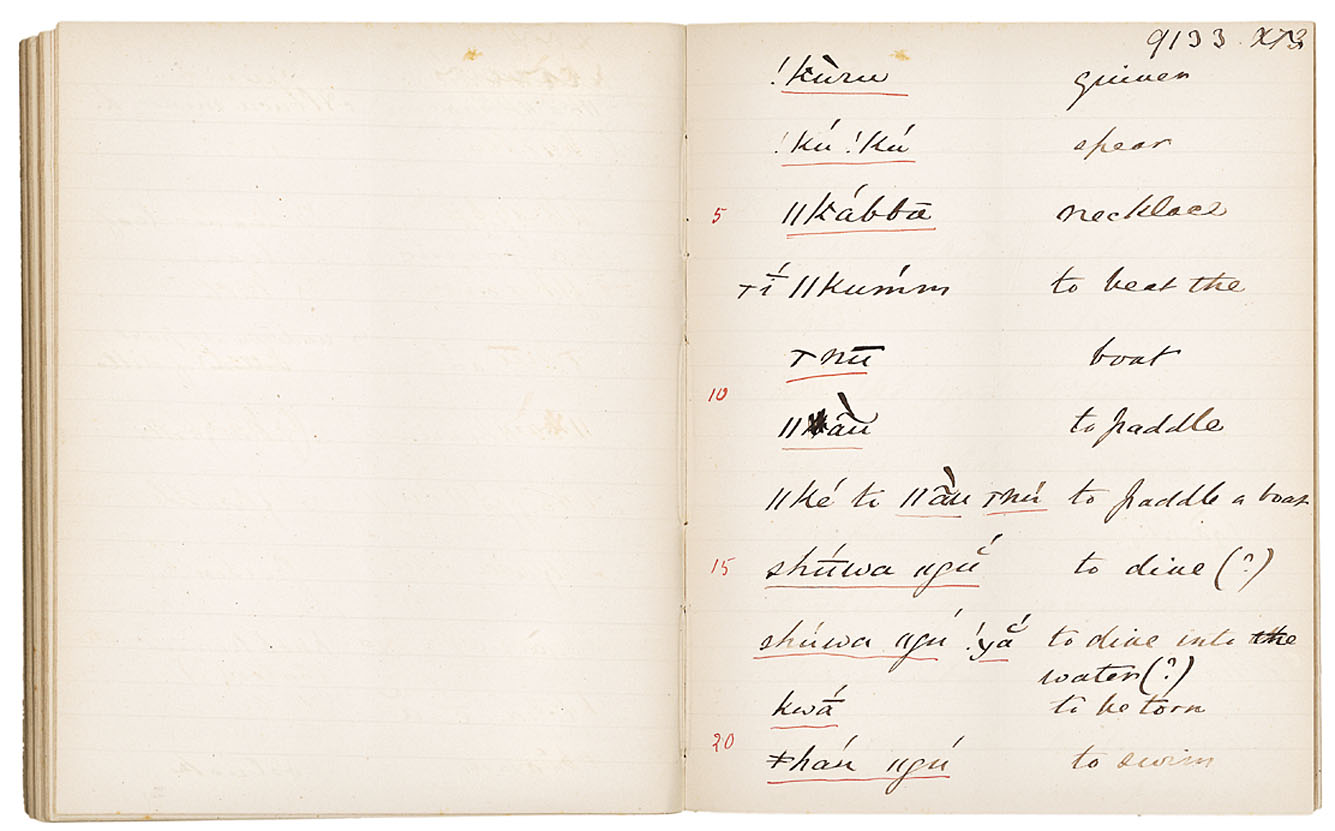 9133
!kùru quiver
!kú !kú spear
5 ||kábbā necklace
||kumm to beat the
τnū boat
10
||àu to paddle
||ké ti ||àu τnú to paddle a boat
15 shúwa ||gú to dive (?)
shúwa ||gú to dive into the
water (?)
kwá to be torn
20 ǂháu ||gú to swim